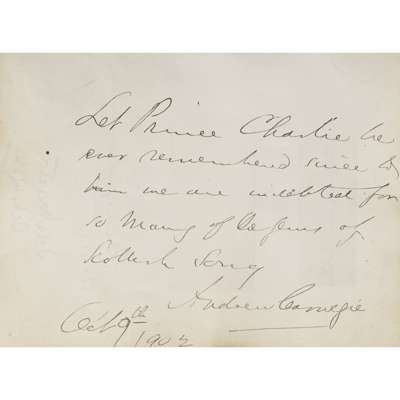 Let Prince Charlie be
ever remembered since to
him we are indebted for
so many of the gems of
Scottish Song
Andrew Carnegie
Oct 9th
1902